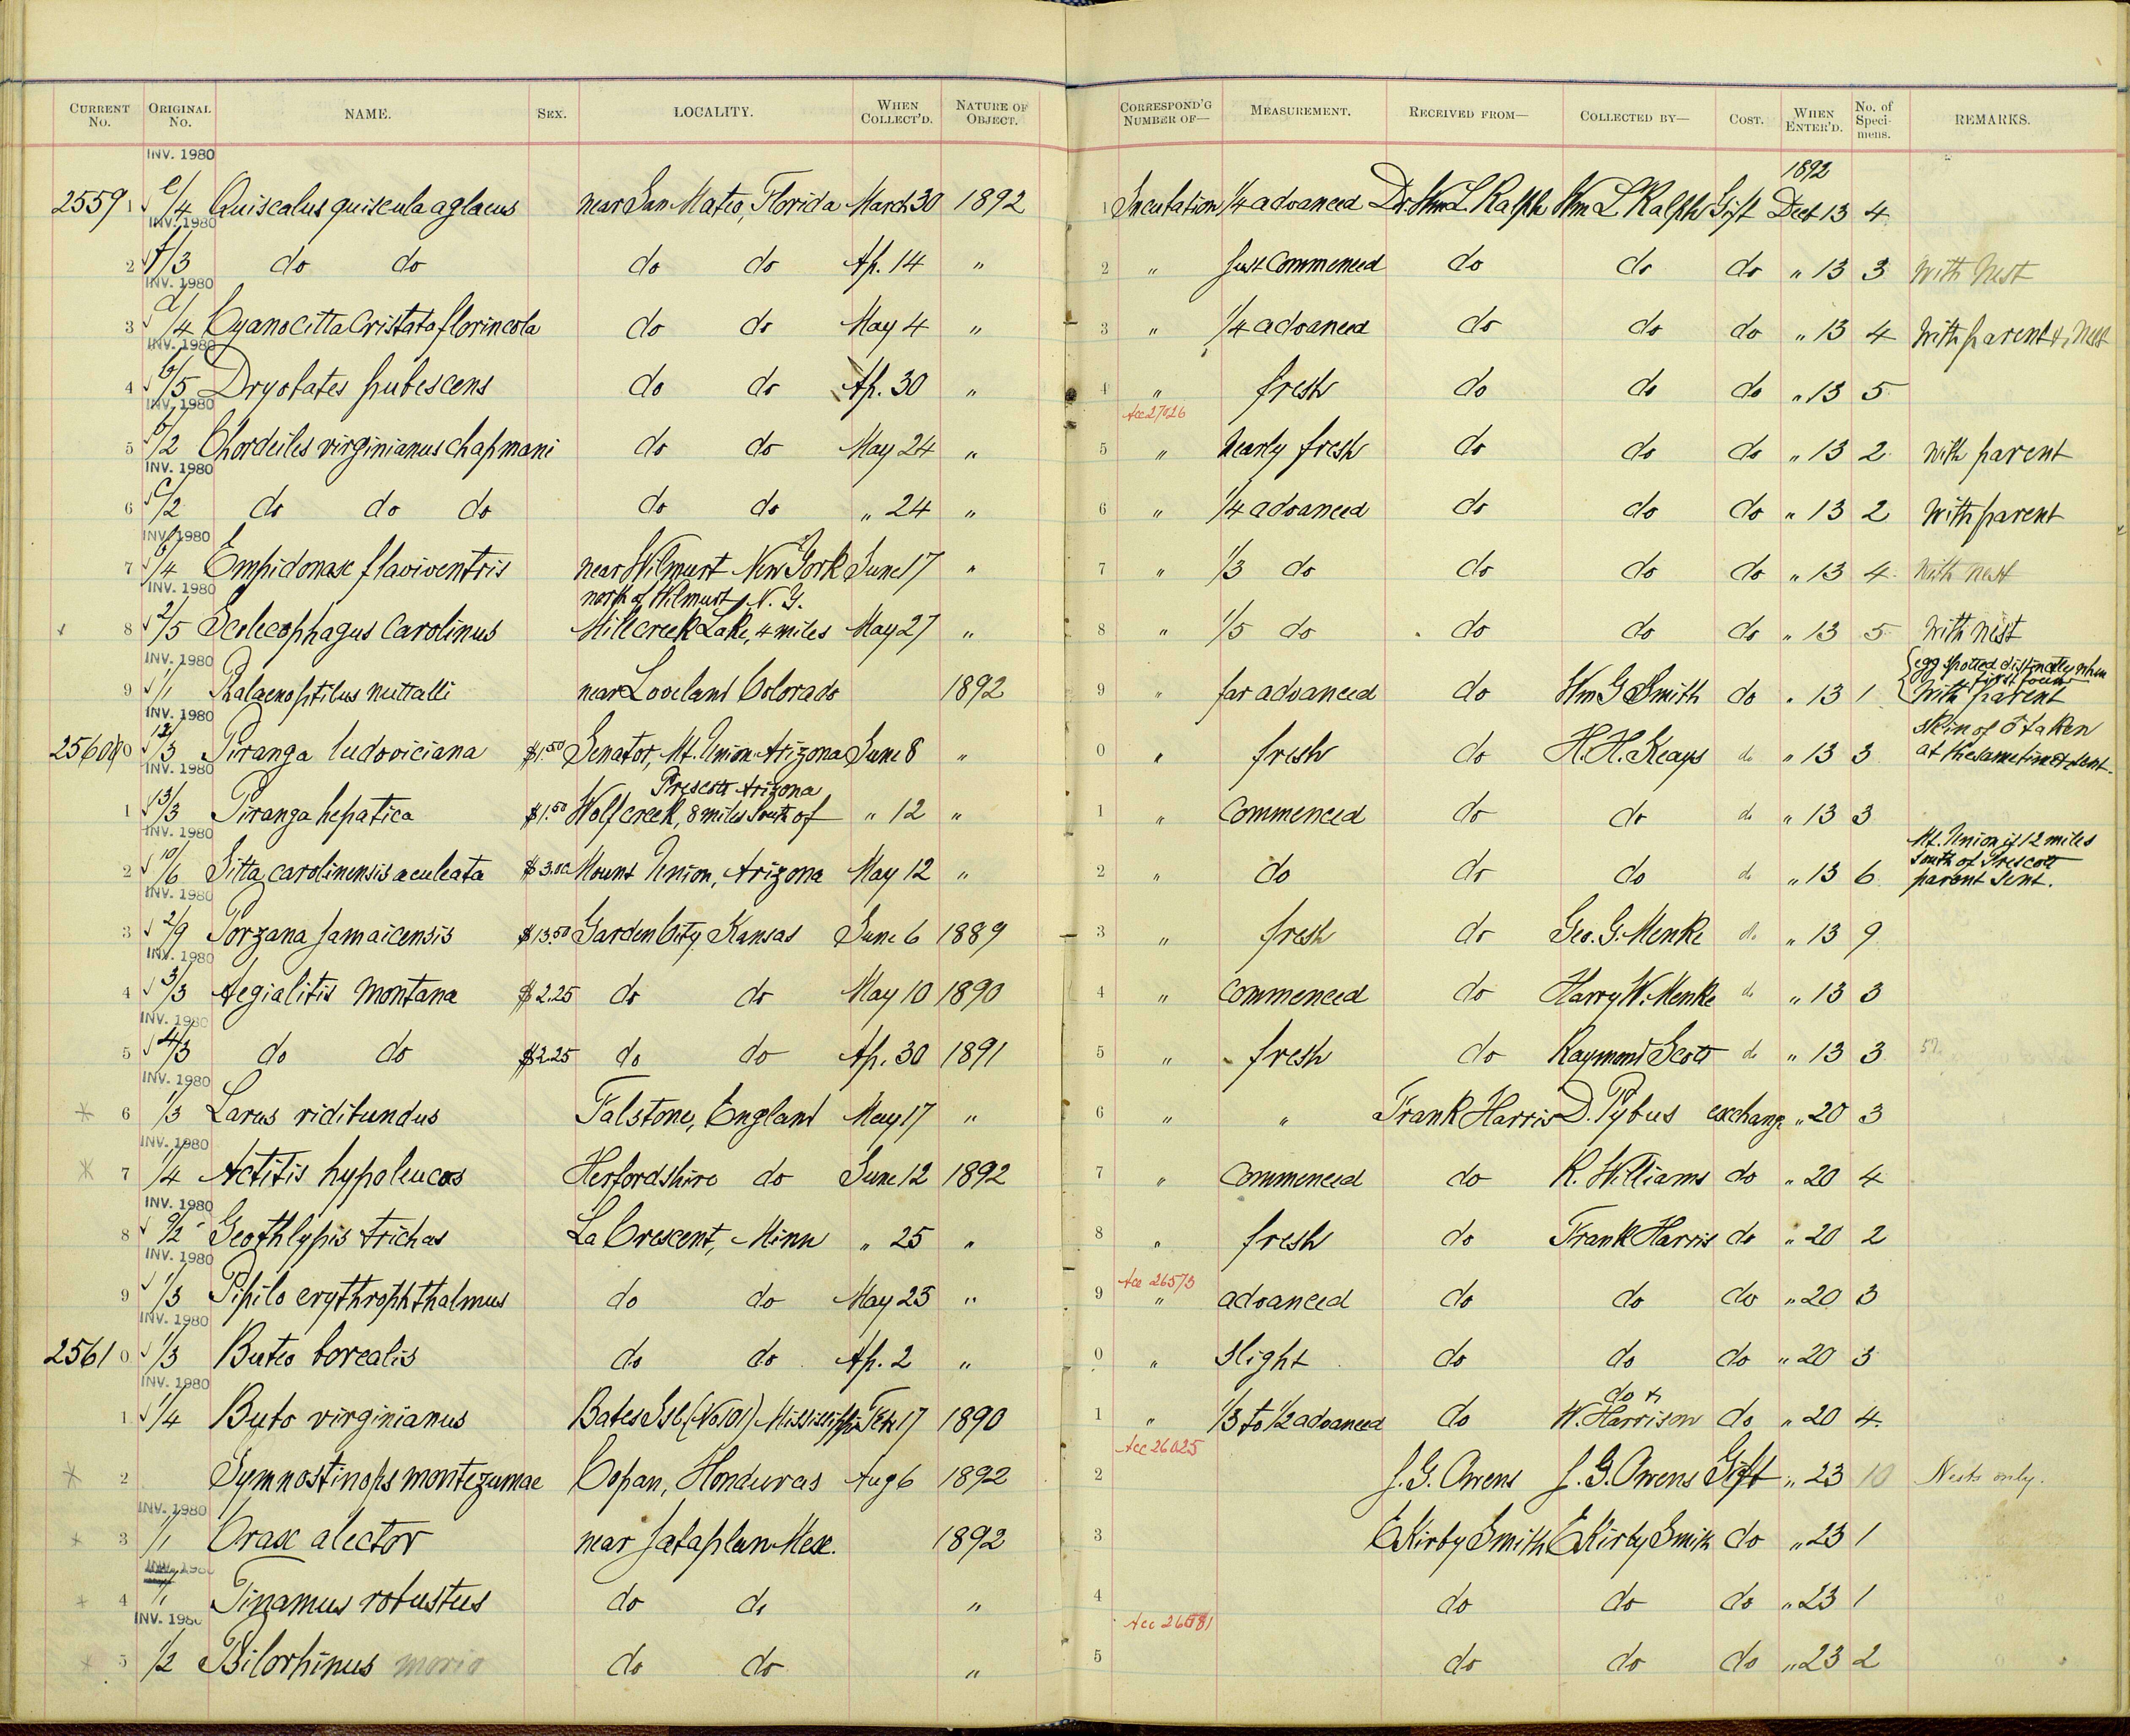 CURRENT No. ORIGINAL No. NAME. SEX. LOCALITY. WHEN COLLECT'D. NATURE OF OBJECT. CORRESPOND'G NUMBER OF— MEASUREMENT. RECEIVED FROM— COLLECTED BY— COST. WHEN ENTER'D. No. of Specimens. REMARKS.
INV. 1980
1892
2559 1 e/4 Quiscalus quiscula aglaeus near San Mateo, Florida March 30 1892 1 Incubation 1/4 advanced Dr. Wm L Ralph Wm L Ralph Gift Dect 13 4
INV. 1980
2 f/3 do do do do Ap. 14 " 2 " Just Commenced do do do " 13 3 With Nest
INV. 1980
3 d/4 Cyanocitta Cristata florincola do do May 4 " 3 " 1/4 advanced do do do " 13 4 With parent & Nest
INV. 1980
4 b/5 Dryobates pubescens do do Ap. 30 " 4 " fresh do do do " 13 5
INV. 1980 Acc 27026
5 b/2 Chordeiles virginianus chapmani do do May 24 " 5 " Nearly fresh do do do " 13 2 With parent
INV. 1980
6 c/2 do do do do do " 24 " 6 " 1/4 advanced do do do " 13 2 With parent
INV. 1980
7 b/4 Empidonax flaviventris near Wilmurt New York June 17 " 7 " 1/3 do do do do " 13 4 With nest
INV. 1980 north of Wilmurt, N. Y.
8 2/5 Scolecophagus Carolinus Mill creek Lake, 4 miles May 27 " 8 " 1/5 do do do do " 13 5 With nest
INV. 1980 egg spotted distinctly when first found
9 1/1 Phalaenoptilus nuttalli near Loveland Colorado 1892 9 " far advanced do Wm G Smith do " 13 1 With parent
INV. 1980 skin of ♂ taken
25600 12/3 Piranga ludoviciana $1.50 Senator, Mt. Union Arizona June 8 " 0 " fresh do H. H. Keays do " 13 3 at the same time & sent.
INV. 1980 Prescott Arizona
1 13/3 Piranga hepatica $1.50 Wolf creek, 8 miles South of " 12 " 1 " Commenced do do do " 13 3
INV. 1980 Mt. Union is 12 miles south of Prescott
2 10/6 Sitta carolinensis aculeata $3.00 Mount Union, Arizona May 12 " 2 " do do do do " 13 6 parent sent.
INV. 1980
3 2/9 Porzana jamaicensis $13.50 Garden City, Kansas June 6 1889 3 " fresh do Geo. G. Menke do " 13 9
INV. 1980
4 3/3 Aegialitis montana $2.25 do do May 10 1890 4 " Commenced do Harry W. Menke do " 13 3
INV. 1980
5 4/3 do do $2.25 do do Ap. 30 1891 5 " fresh do Raymond Scott do " 13 3
INV. 1980
6 1/3 Larus ridibundus Falstone, England May 17 " 6 " " Frank Harris D. Pybus exchange " 20 3
INV. 1980
7 1/4 Actitis hypoleucos Herfordshire do June 12 1892 7 " Commenced do R. Williams do " 20 4
INV. 1980
8 9/2 Geothlypis trichas La Crescent, Minn " 25 " 8 " fresh do Frank Harris do " 20 2
INV. 1980 Acc 26573
9 1/3 Pipilo erythrophthalmus do do May 23 " 9 " advanced do do do " 20 3
INV. 1980
2561 0 1/3 Buteo borealis do do Ap. 2 " 0 " Slight do do do " 20 3
INV. 1980 do &
1 1/4 Bubo virginianus Bates Isl. (No 101) Mississippi Feb 17 1890 1 " 1/3 to 1/2 advanced do W. Harrison do " 20 4
Acc 26025
2 Gymnostinops montezumae Copan, Honduras Aug 6 1892 2 J. G. Owens J. G. Owens Gift " 23 10 Nests only.
INV. 1980
3 1/1 Crax alector near Jataplan Mex. 1892 3 E Kirby Smith E Kirby Smith do " 23 1
INV. 1980
4 1/1 Tinamus robustus do do " 4 do do do " 23 1
INV. 1980
5 1/2 Psilorhinus morio do do " 5 do do do " 23 2